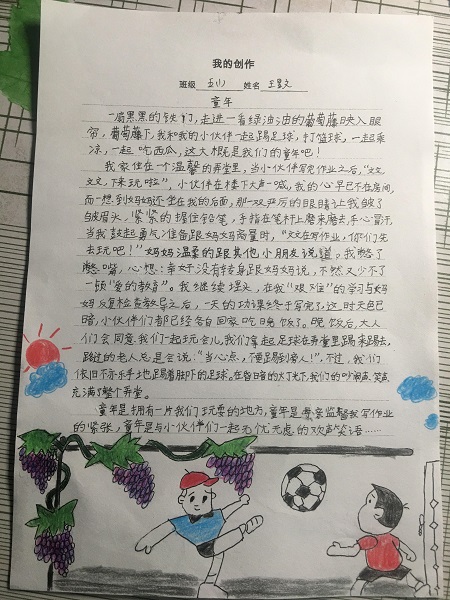 我的创作
班级 五(1) 姓名 王昱文
童年
一扇黑黑的铁门,走进一看绿油油的葡萄藤映入眼
帘,葡萄藤下,我和我的小伙伴一起踢足球,打篮球,一起乘
凉,一起吃西瓜,这大概是我们的童年吧!
我家住在一个温馨的弄堂里,当小伙伴写完作业之后,“文文
文文,下来玩啦”,小伙伴在楼下大声一喊,我的心早已不在房间,
而一想到妈妈还坐在我的后面,那一双严厉的眼睛让我皱了
皱眉头,紧紧的握住铅笔,手指在笔杆上磨来磨去,手心冒汗,
当我鼓起勇气准备跟妈妈商量时,“文文在写作业,你们先
去玩吧!”妈妈温柔的跟其他小朋友说道,我憋了
憋嘴,心想:幸好没有转身跟妈妈说,不然又少不了
一顿“爱的教育”。我继续埋头,在我“艰下难”的学习与妈
妈反复检查教导之后,一天的功课终于写完了,这时天色已
暗,小伙伴们都已经各自回家吃晚饭了。晚饭后,大人
们会同意我们一起玩会儿,我们拿起足球在弄堂里踢来踢去,
路过的老人总是会说:“当心点,不要踢到客人!”,不过,我们
依旧不亦乐乎地踢着脚下的足球。在昏暗的灯光下,我们的吵闹声、笑声
充满了整个弄堂。
童年是拥有一片我们玩耍的地方,童年是母亲监督我写作业
的紧张,童年是与小伙伴们一起无忧无虑的欢声笑语……